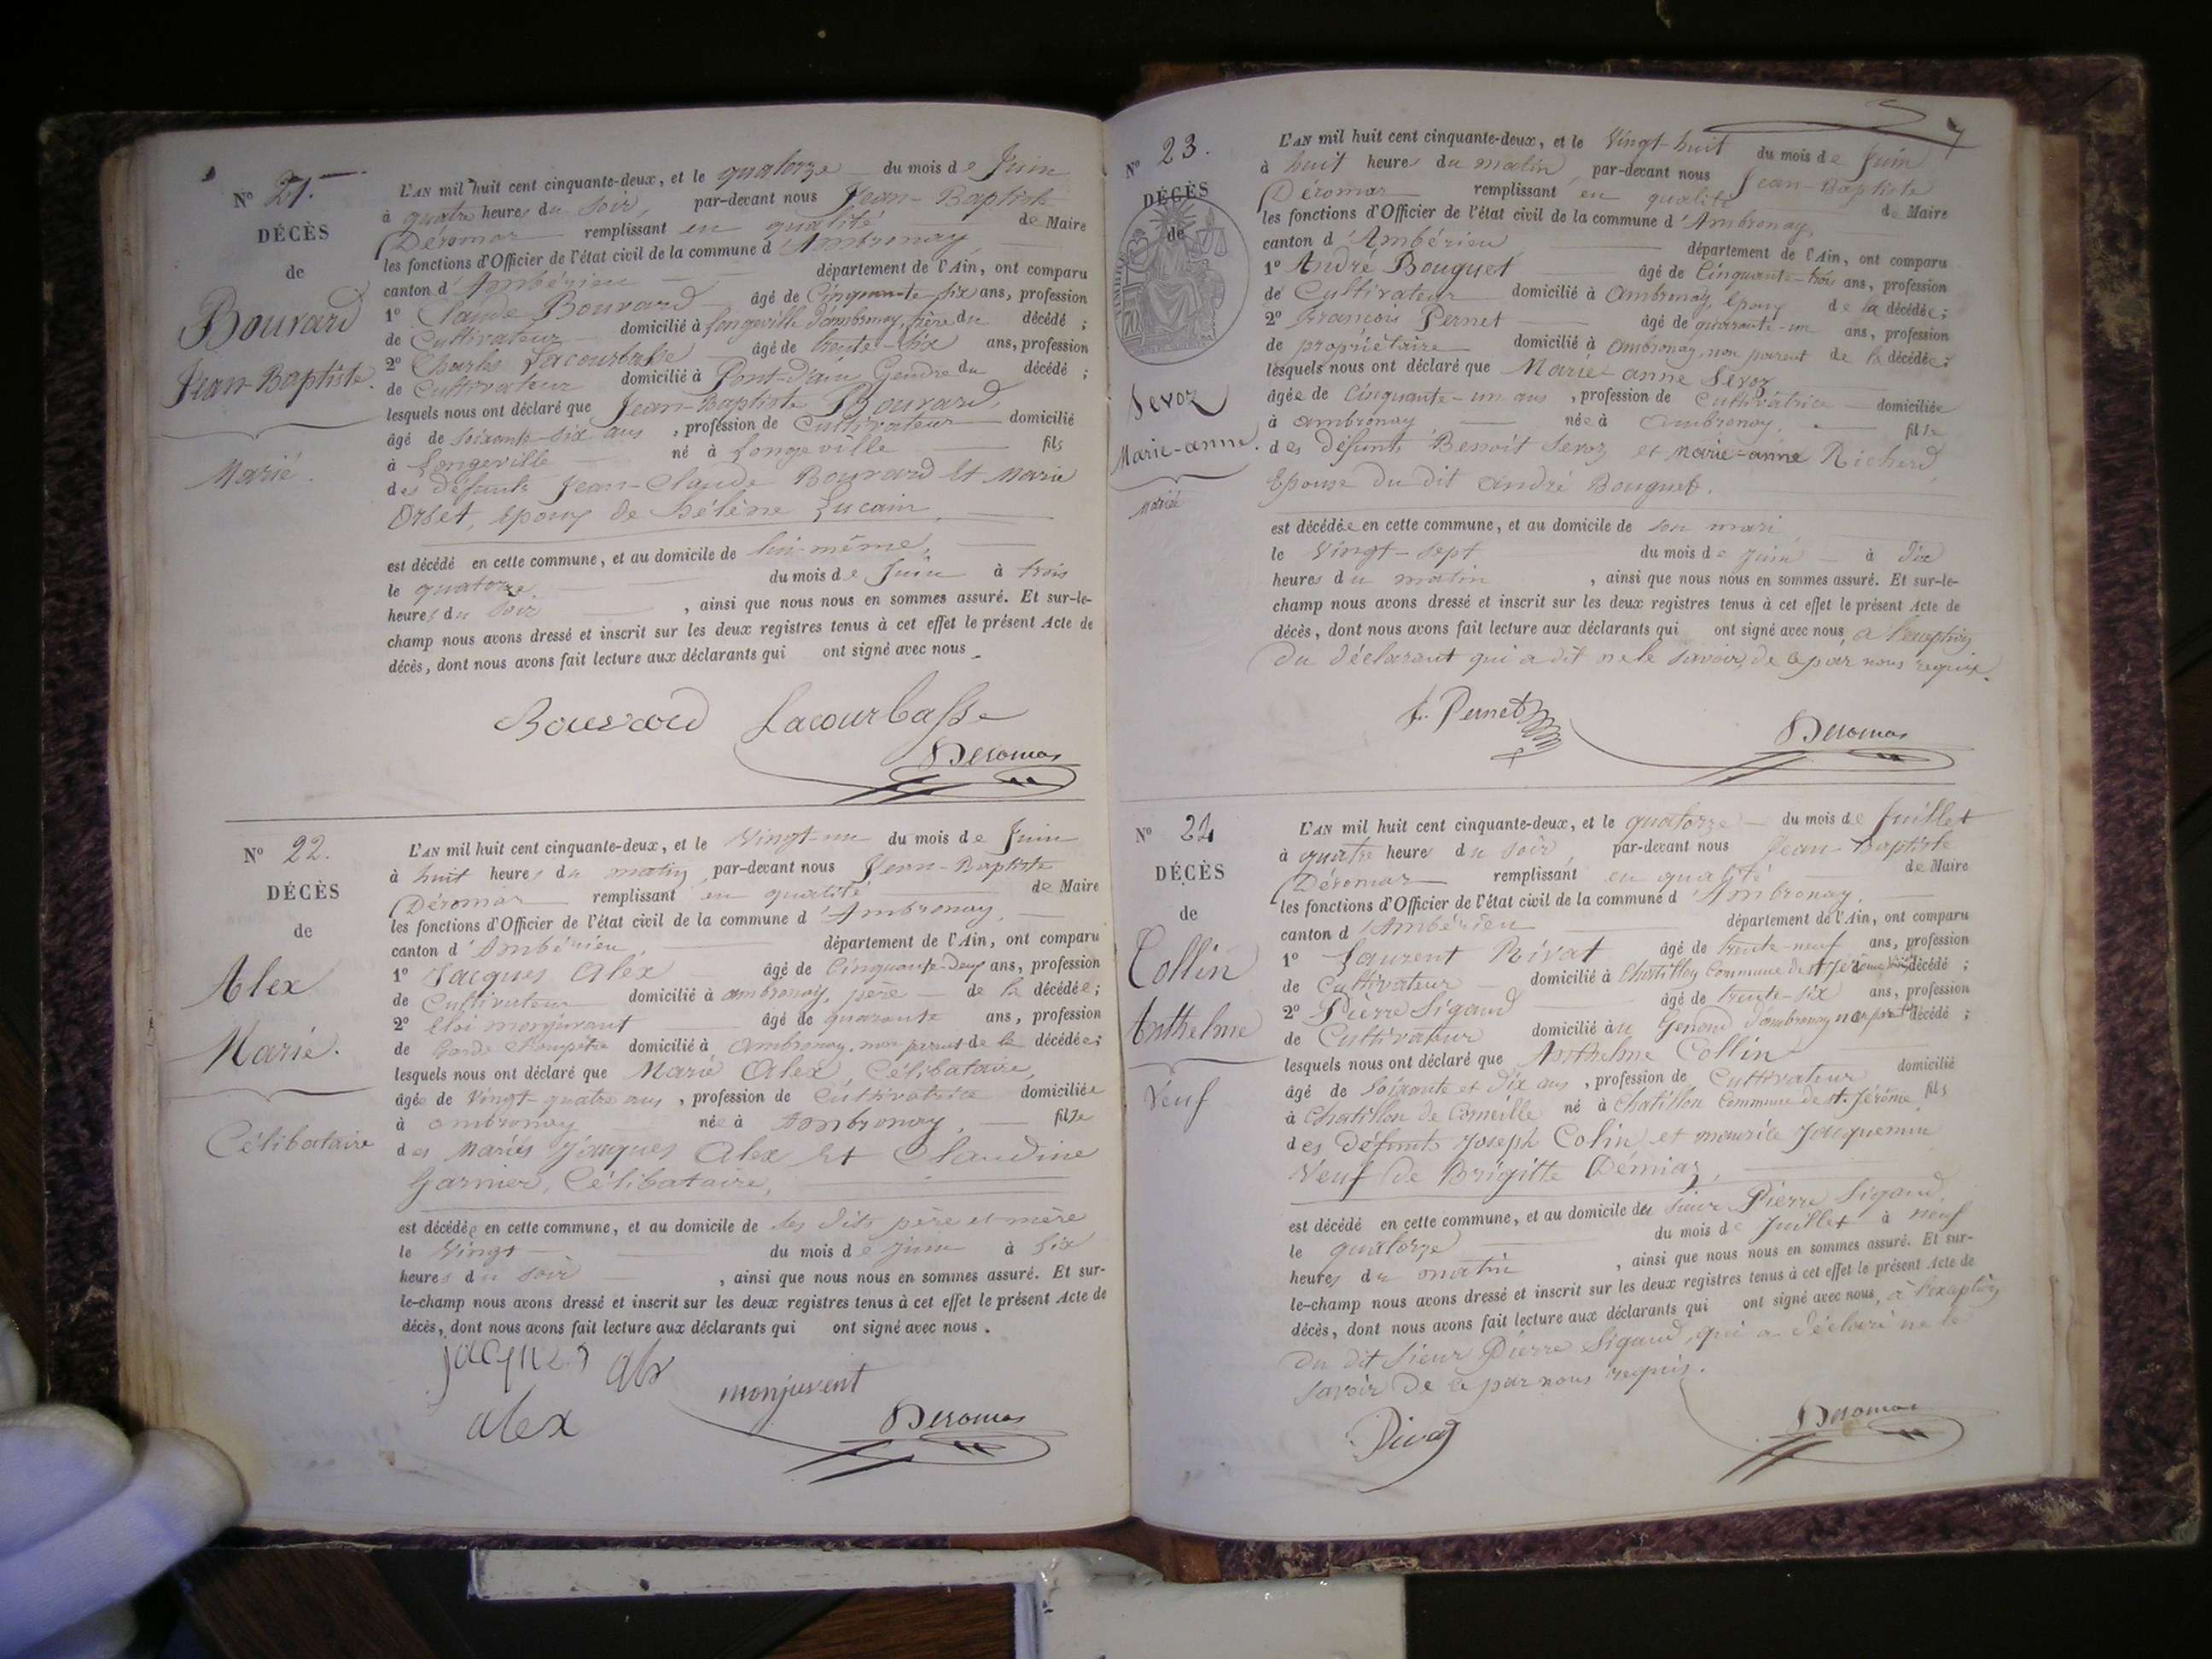 N° 21.
DÉCÈS
de
Bouvard
Jean-Baptiste.
Marié.
L'AN mil huit cent cinquante-deux, et le quatorze du mois de Juin
à quatre heures du soir, par-devant nous Jean-Baptiste
Déromas remplissant en qualité de Maire
les fonctions d'Officier de l'état civil de la commune d'Ambronay,
canton d'Ambérieu département de l'Ain, ont comparu
1° Claude Bouvard âgé de Cinquante-six ans, profession
de Cultivateur domicilié à Longeville d'ambronay, frère du décédé ;
2° Charles Lacourbasse âgé de trente-six ans, profession
de Cultivateur domicilié à Pont-d'ain, Gendre du décédé ;
lesquels nous ont déclaré que Jean-Baptiste Bouvard,
âgé de soixante-six ans, profession de Cultivateur domicilié
à Longeville né à Longeville fils
des défunts Jean-Claude Bouvard et Marie
Orset, époux de hélène Lucain,
est décédé en cette commune, et au domicile de lui-même,
le quatorze du mois de Juin à trois
heures du soir, ainsi que nous nous en sommes assuré. Et sur-le-
champ nous avons dressé et inscrit sur les deux registres tenus à cet effet le présent Acte de
décès, dont nous avons fait lecture aux déclarants qui ont signé avec nous.
Bouvard Lacourbasse
Deromas
N° 22.
DÉCÈS
de
Alex
Marie.
Célibataire
L'AN mil huit cent cinquante-deux, et le Vingt-un du mois de Juin
à huit heures du matin, par-devant nous Jean-Baptiste
Déromas remplissant en qualité de Maire
les fonctions d'Officier de l'état civil de la commune d'Ambronay,
canton d'Ambérieu, département de l'Ain, ont comparu
1° Jacques Alex âgé de Cinquante-deux ans, profession
de Cultivateur domicilié à ambronay, père de la décédée ;
2° Eloi monjuvent âgé de quarante ans, profession
de Garde Champêtre domicilié à Ambronay, non parent de la décédée ;
lesquels nous ont déclaré que Marie Alex, Célibataire,
âgée de Vingt-quatre ans, profession de Cultivatrice domiciliée
à ambronay née à Ambronay, fille
des Mariés Jacques Alex et Claudine
Garnier, Célibataire,
est décédée en cette commune, et au domicile de ses dits père et mère
le Vingt du mois de Juin à Six
heures du soir, ainsi que nous nous en sommes assuré. Et sur-
le-champ nous avons dressé et inscrit sur les deux registres tenus à cet effet le présent Acte de
décès, dont nous avons fait lecture aux déclarants qui ont signé avec nous.
jacques alx
alex monjuvent
Deromas
7
N° 23.
DÉCÈS
de
Sevoz
Marie-anne.
Mariée
L'AN mil huit cent cinquante-deux, et le Vingt-huit du mois de Juin
à huit heures du matin, par-devant nous Jean-Baptiste
Déromas remplissant en qualité de Maire
les fonctions d'Officier de l'état civil de la commune d'Ambronay,
canton d'Ambérieu département de l'Ain, ont comparu
1° André Bouquet âgé de Cinquante-trois ans, profession
de Cultivateur domicilié à Ambronay, époux de la décédée ;
2° François Pernet âgé de quarante-un ans, profession
de propriétaire domicilié à Ambronay, non parent de la décédée ;
lesquels nous ont déclaré que Marie-anne Sevoz
âgée de Cinquante-un ans, profession de Cultivatrice domiciliée
à ambronay née à Ambronay, fille
des défunts Benoît Sevoz et Marie-anne Richerd,
Epouse du dit andré Bouquet.
est décédée en cette commune, et au domicile de son mari
le Vingt-sept du mois de Juin à Dix
heures du matin, ainsi que nous nous en sommes assuré. Et sur-le-
champ nous avons dressé et inscrit sur les deux registres tenus à cet effet le présent Acte de
décès, dont nous avons fait lecture aux déclarants qui ont signé avec nous, à l'exception
du déclarant qui a dit ne le savoir, de ce par nous requis.
f. Pernet
Deromas
N° 24
DÉCÈS
de
Collin
Anthelme
Veuf
L'AN mil huit cent cinquante-deux, et le quatorze du mois de Juillet
à quatre heures du soir, par-devant nous Jean-Baptiste
Déromas remplissant en qualité de Maire
les fonctions d'Officier de l'état civil de la commune d'Ambronay,
canton d'Ambérieu département de l'Ain, ont comparu
1° Laurent Rivat âgé de trente-neuf ans, profession
de Cultivateur domicilié à Chatillon Commune de St Jérôme décédé ;
2° Pierre Sigaud âgé de trente-six ans, profession
de Cultivateur domicilié au Genoud d'ambronay non parent décédé ;
lesquels nous ont déclaré que Anthelme Collin
âgé de Soixante et dix ans, profession de Cultivateur domicilié
à Chatillon de Corneille né à Chatillon Commune de St. Jérôme, fils
des défunts Joseph Colin et maurice Jacquemin
Veuf de Brigitte Démiaz,
est décédé en cette commune, et au domicile de sieur Pierre Sigaud,
le quatorze du mois de Juillet à neuf
heures du matin, ainsi que nous nous en sommes assuré. Et sur-
le-champ nous avons dressé et inscrit sur les deux registres tenus à cet effet le présent Acte de
décès, dont nous avons fait lecture aux déclarants qui ont signé avec nous, à l'exception
du dit sieur Pierre Sigaud, qui a déclaré ne le
savoir de ce par nous requis.
Rivat
Deromas